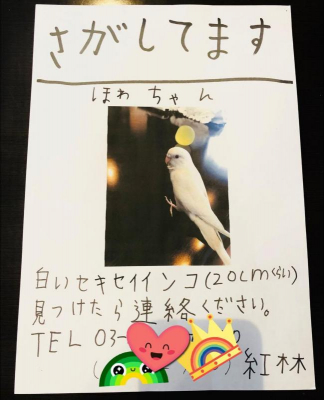 さがしてます
ほわちゃん
白いセキセイインコ(20cmぐらい)
見つけたら連絡ください。
TEL 03-
( ) 紅林